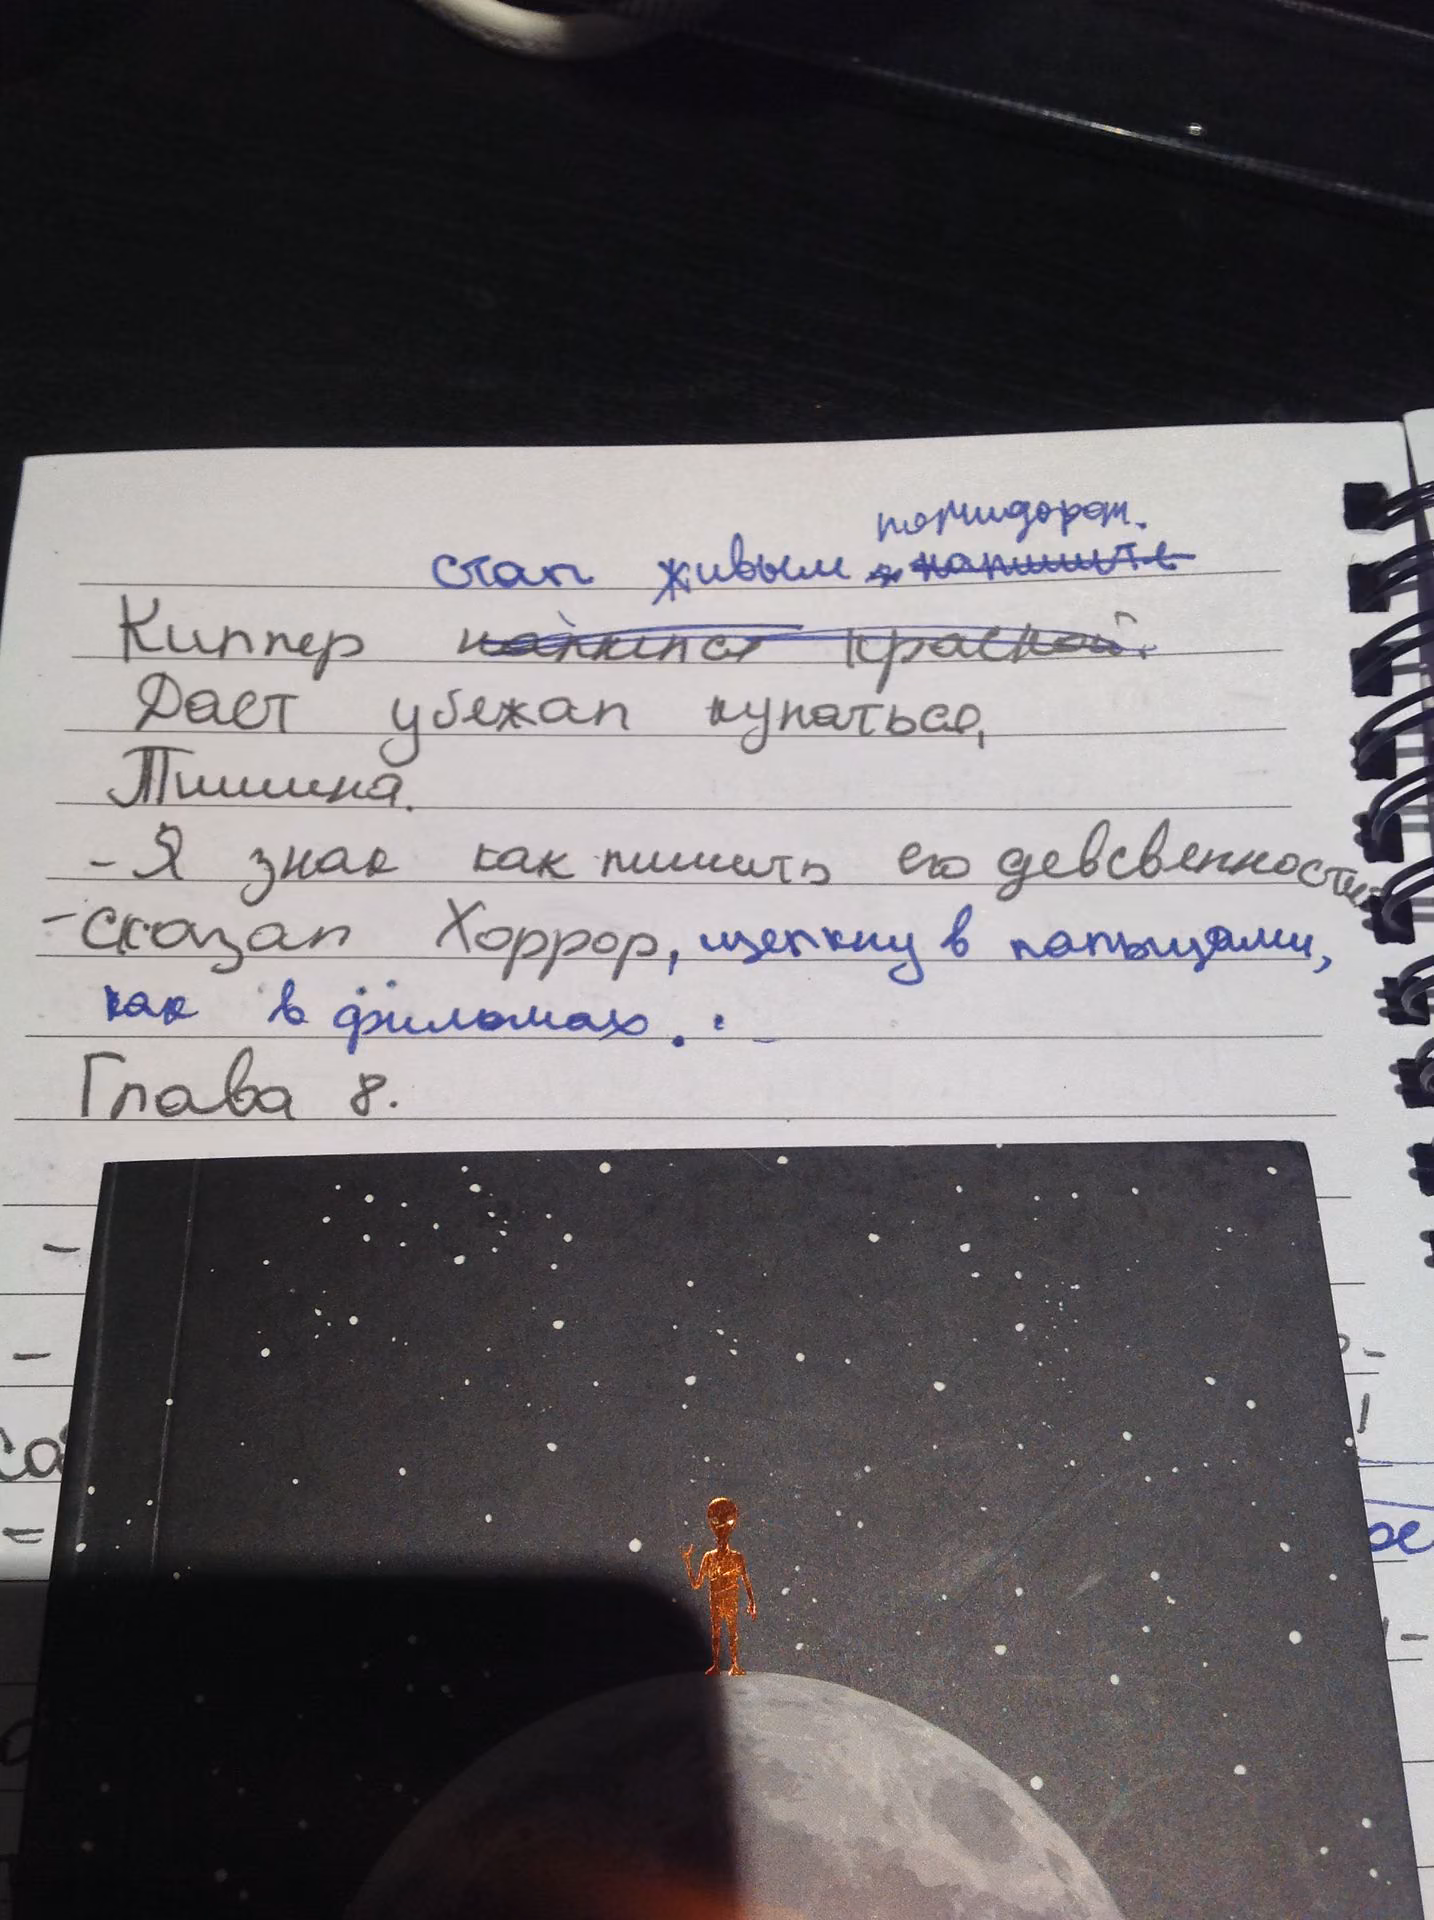 помидором.
стал живым
Киллер налился краской.
Даст убежал купаться,
Тишина.
- Я знаю как лишить его девсвенности
- сказал Хоррор, щелкнув пальцами,
как в фильмах.
Глава 8.
-
-
са
=